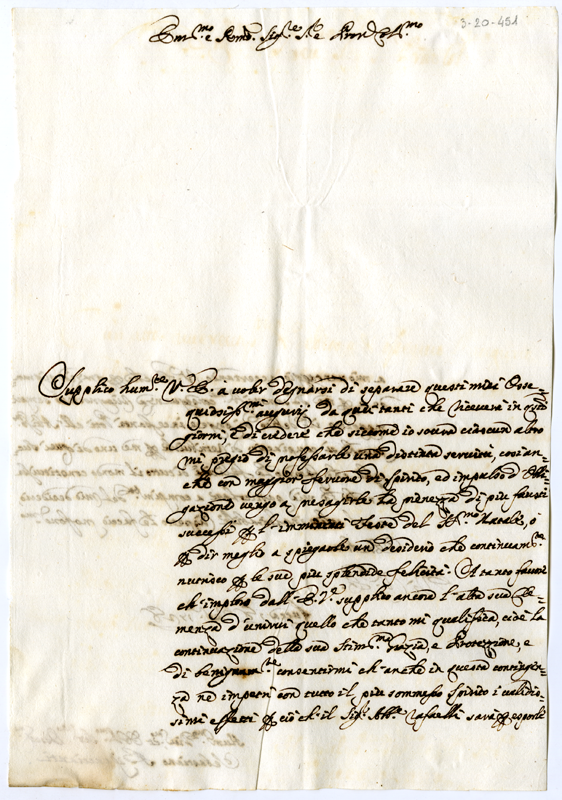 3-20-451
Em.mo e Rmo. Sig.e S.e e Pron. Col.mo
Supplico hum.te V.E. à voler degnarsi di separare questi miei osse-
quiosiss.mi augurij da quei tanti che riceverà in q.sti
giorni, e di credere che siccome io sovra ciascun altro
mi pregio di professarle una distinta servitù, così an-
che con maggior fervore di spirito, ed impulso d'obli-
gazione vengo a presagirle la pienezza di più fausti
successi per l'imminenti Feste del SS.mo Natale, ò
per dir meglio a spiegarle un desiderio che continuam.te
nutrisco per le sue più splendide felicità. A tanto favore
ch'imploro dall'E.V. supplico ancora l'alta sua Cle-
menza d'unirvi quello che tanto mi qualifica, cioè la
continuazione della sua stim.ma Grazia, e Protezzione, e
di benignam.te consentirmi ch'anche in questa contingen-
za ne impetri con tutto il più sommesso spirito i validis-
simi effetti per ciò ch'il Sig.r Ab.e Rafaelli sarà per esporle